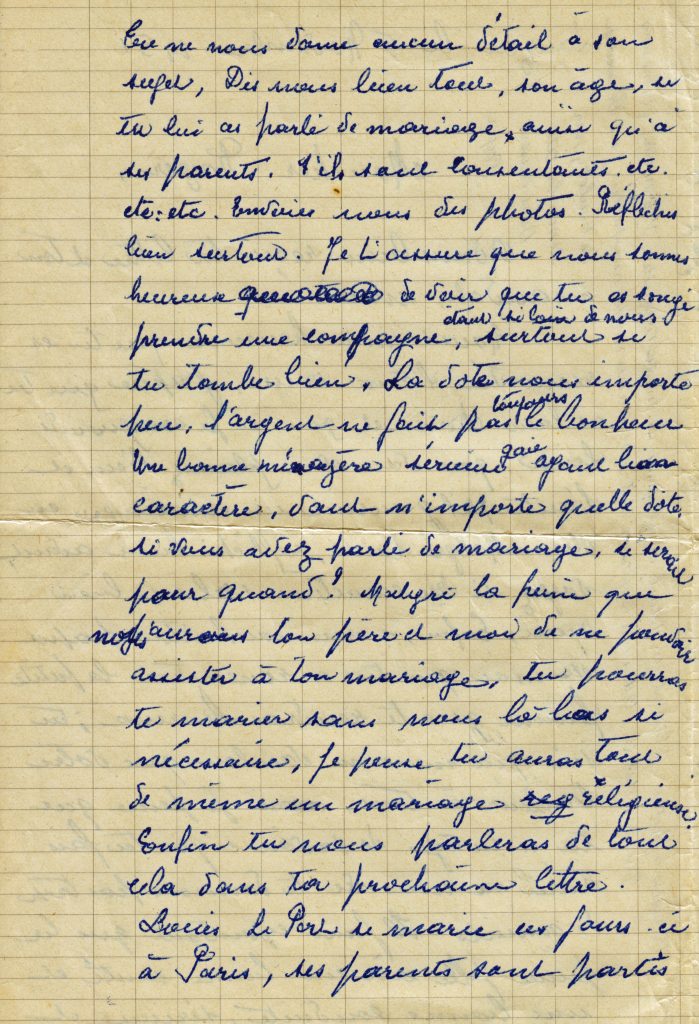 Tu ne nous donne aucun détail à son
sujet, Dis nous bien tout, son âge, si
tu lui as parlé de mariage, ainsi qu'à
ses parents. S'ils sont consentants. etc.
etc: etc. Envoies nous des photos. Réfléchis
bien surtout. Je t'assure que nous sommes
heureux de voir que tu as songé
prendre une compagne, étant si loin de nous surtout si
tu tombe bien. La dote nous importe
peu, l'argent ne fait pas toujours le bonheur
Une bonne ménagère sérieuse gaie ayant bon
caractère, vaut n'importe quelle dote.
si vous avez parlé de mariage, se serait
pour quand? Malgré la peine que
nous aurons ton père et moi de ne pouvoir
assister à ton mariage, tu pourras
te marier sans nous là bas si
nécessaire, je pense tu auras tout
de même un mariage réligieux.
Enfin tu nous parleras de tout
cela dans ta prochaine lettre.
Louis Le se marie ces jours-ci
à Paris, ses parents sont partis